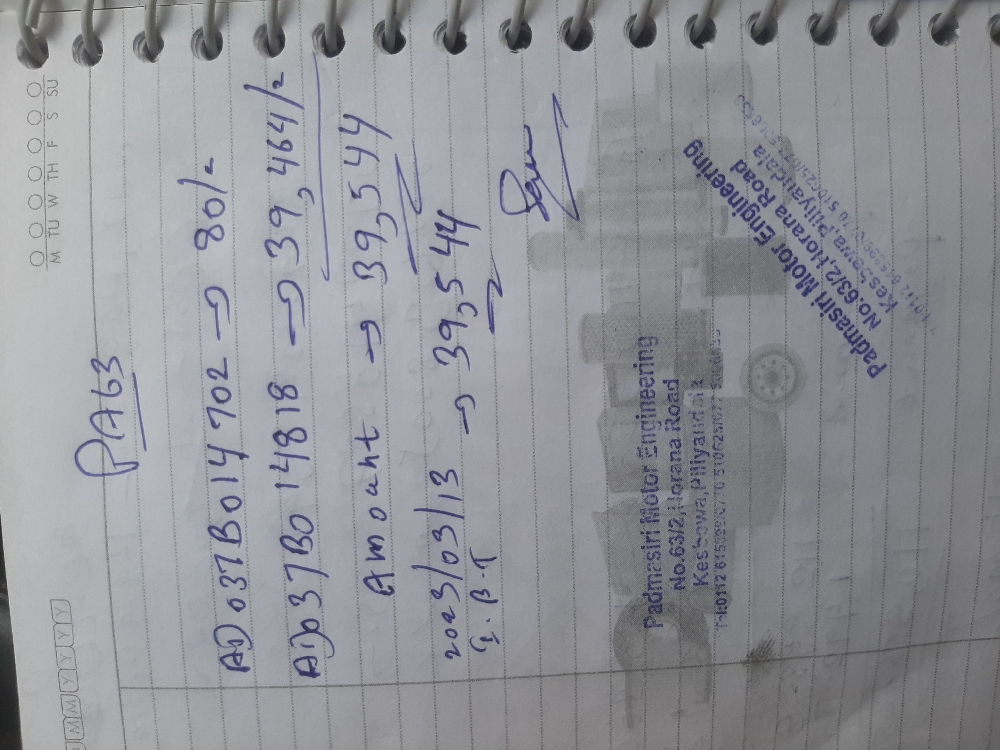 M TU W TH F S SU
MM YYYY
PA63
AD037B014702 → 80/=
AD037B014818 → 39,464/=
Amount → 39,544
2023/03/13 → 39,544
I.B.T
Padmasiri Motor Engineering
No.63/2,Horana Road
Kesbewa,Piliyandala
Padmasiri Motor Engineering
No.63/2,Horana Road
Kesbewa,Piliyandala